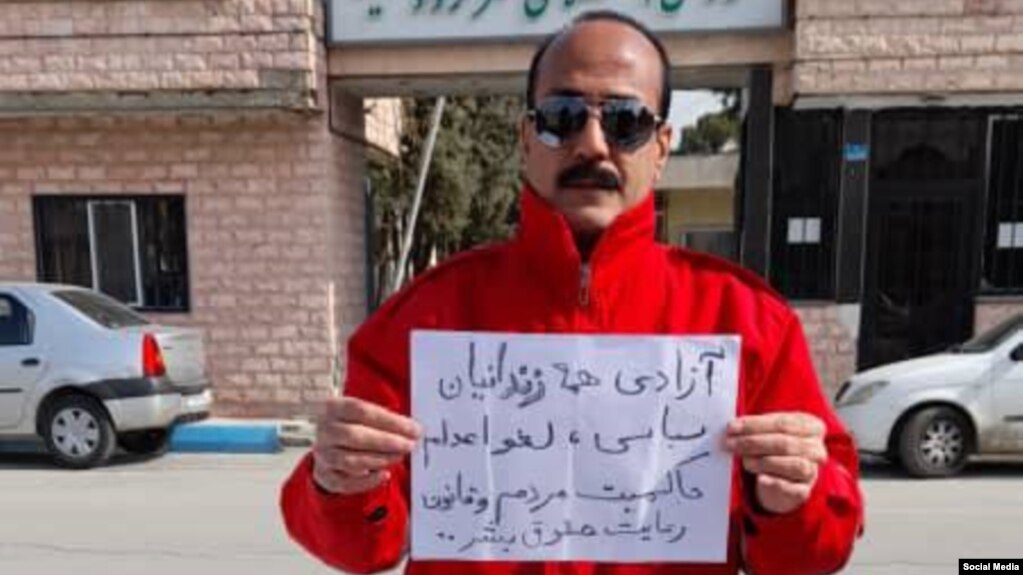 آزادی همهٔ زندانیان
سیاسی، لغو اعدام
حاکمیت مردم و قانون
رعایت حقوق بشر ..
Social Media